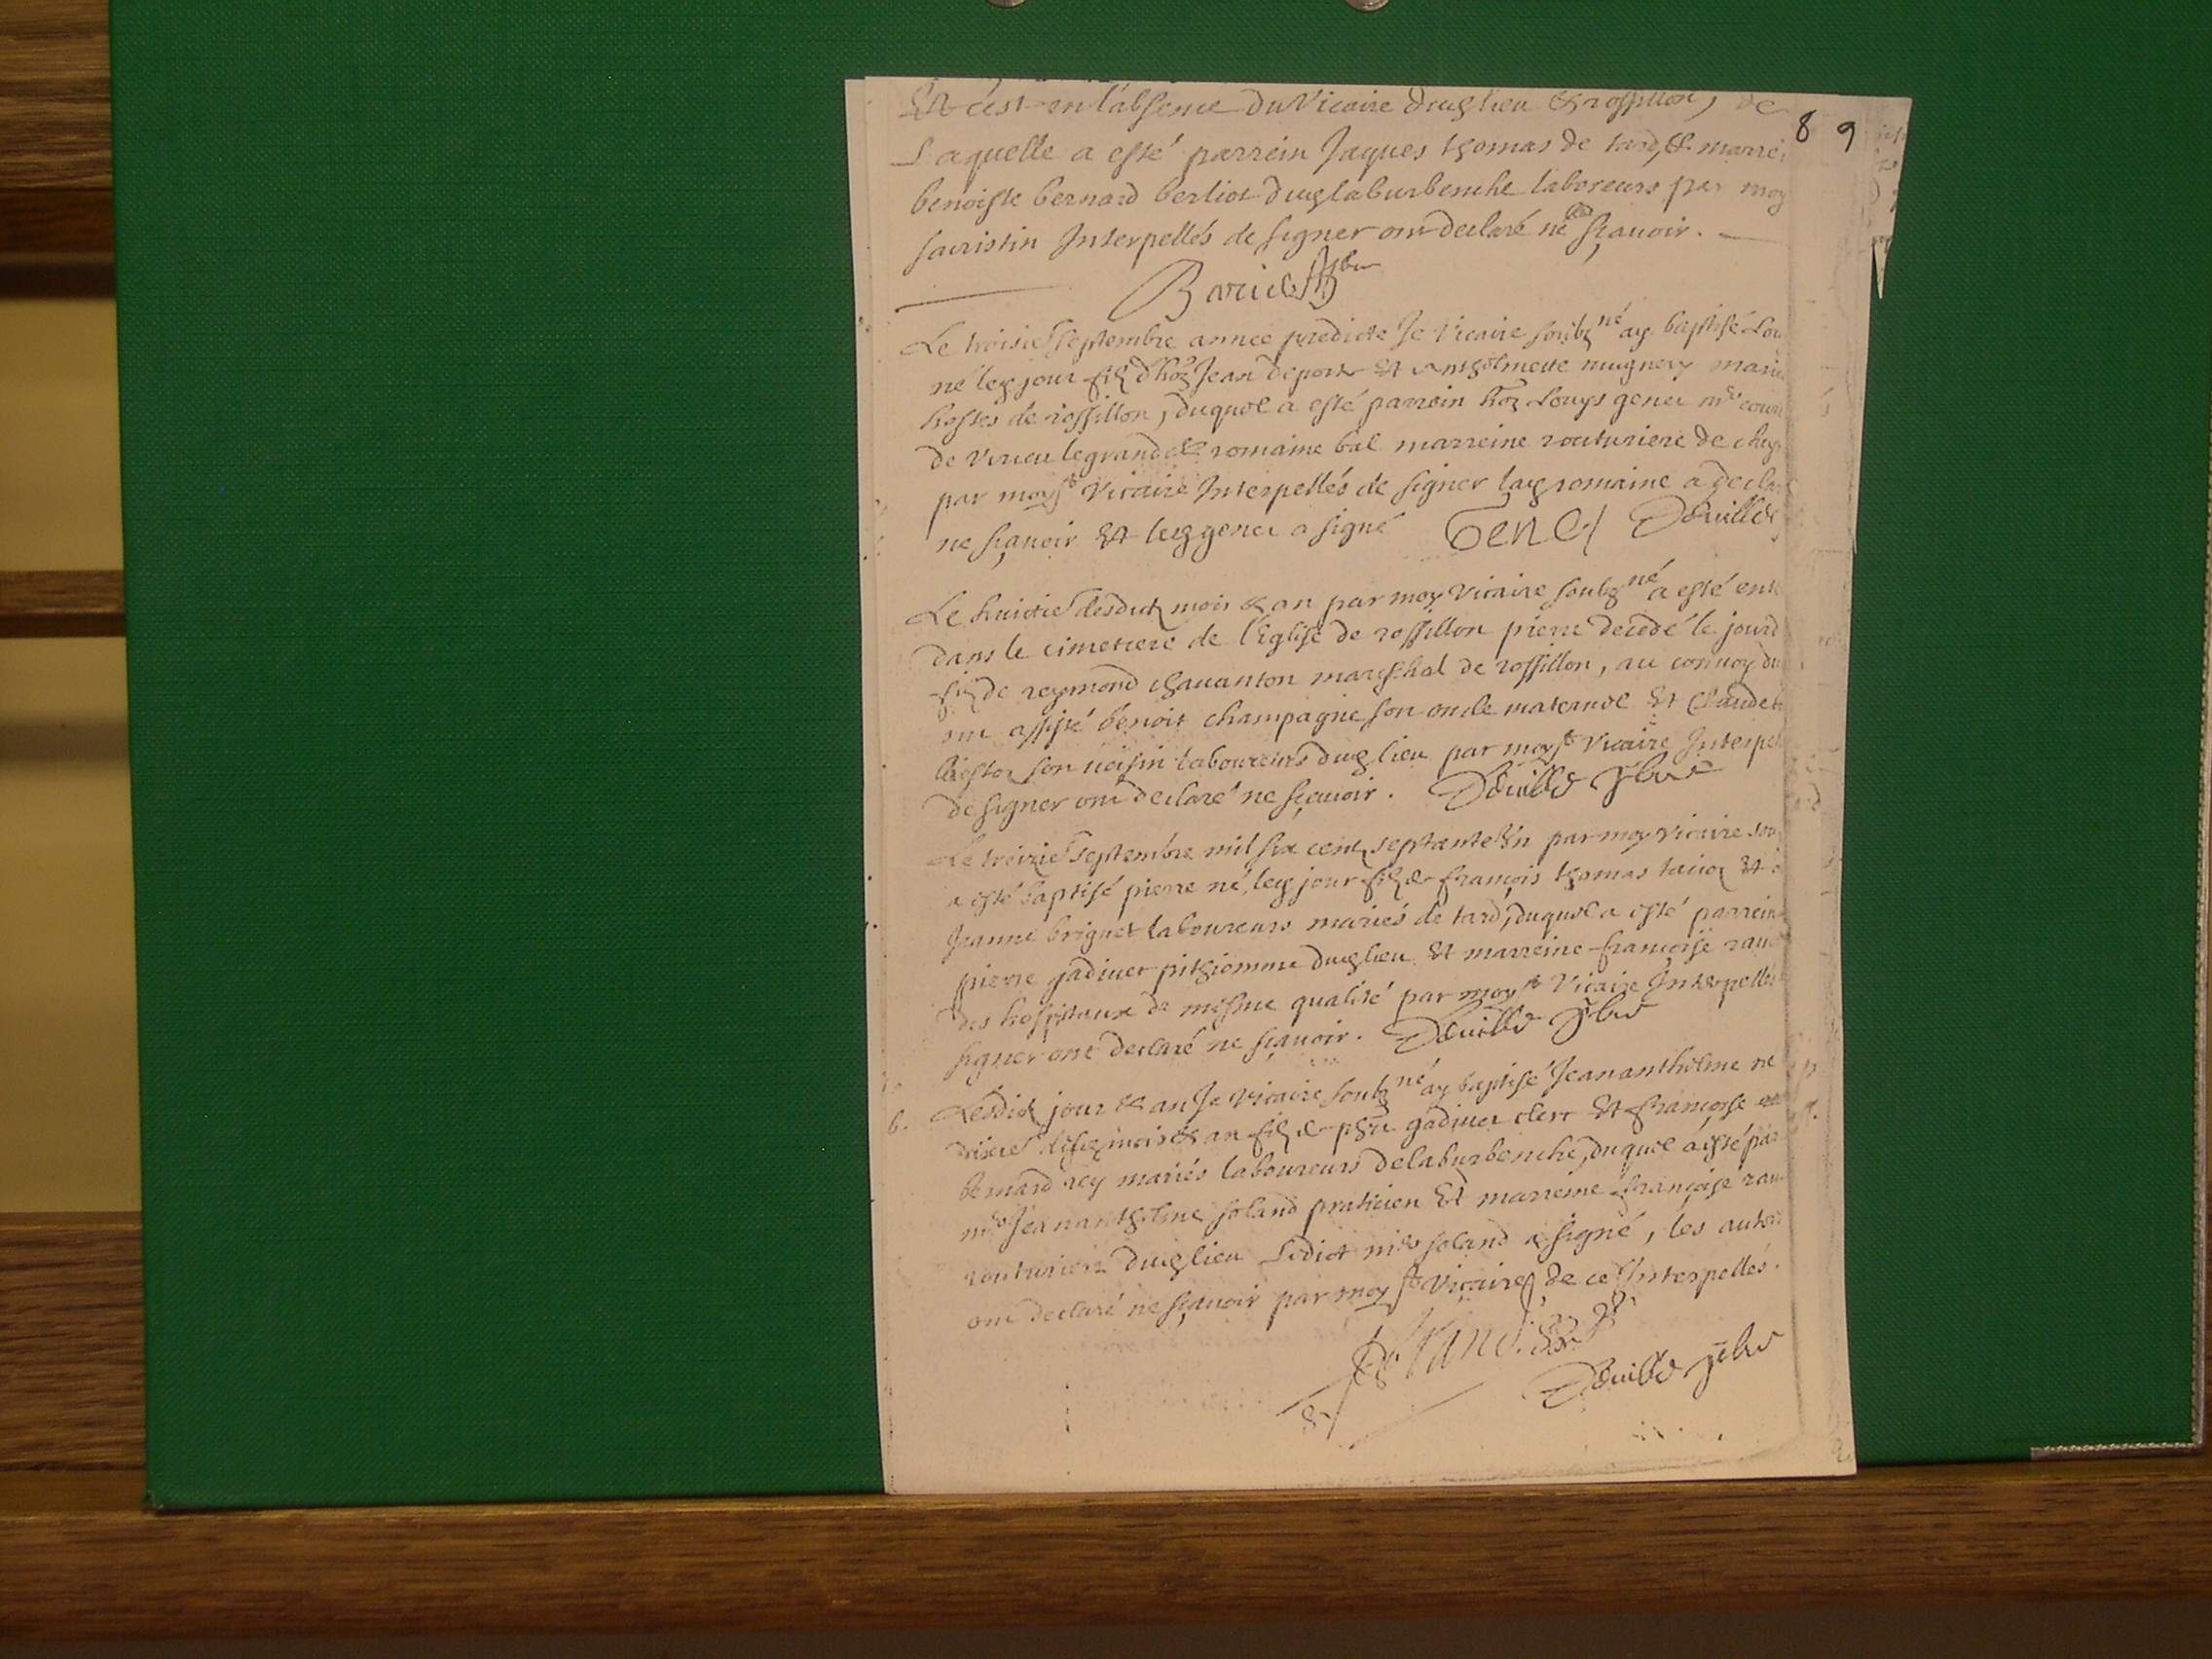 Et c'est en l'absence du Vicaire dudt lieu de rossillon, de
8 9
Laquelle a esté parrein Jaques thomas de tard, & marrei
benoiste bernard berliot dudt laburbenche laboreurs par moy
sacristin Interpellés de signer ont declaré ne sçauoir.
Le troisie septembre annee predicte Je Vicaire soubzné ay baptisé Lou
né ledt jour filz d'hoe Jean deporte Et Antholmette mugnery marie
hostes de rossillon, duquel a esté parrein hoe Louys genet me
de Virieu le grand & romaine bal marreine routuriere de
par moy st Vicaire Interpellés de signer ladt romaine a decla
ne sçauoir Et ledt genet a signé Genet Déuille
Le huictie desdictz mois & an par moy Vicaire soubzné a esté ent
dans le cimetiere de l'Eglise de rossillon pierre decedé le jour d
filz de reymond chauanton mareschal de rossillon, au conuoy du
ont assisté benoit champagne son oncle maternel Et Claude
son uoisin laboureurs dudt lieu par moy st Vicaire Interpel
de signer ont declaré ne sçauoir. Déuille pbre
Le treizie septembre mil six centz septante Vn par moy vicaire sou
a esté baptisé pierre né ledt jour filz de françois thomas Et
Jeanne briguet laboureurs mariés de tard, duquel a esté parrein
pierre gadiuet dudt lieu Et marreine françoise rau
des hospitaux de mesme qualité par moy st Vicaire Interpellés
signer ont declaré ne sçauoir. Déuille pbre
6. Lesdictz jour & an Je Vicaire soubzné ay baptisé Jeananthelme né
mois & an filz de gadiuet clerc Et françoise
bernard rey mariés laboureurs de laburbenche, duquel a esté par
me Jeananthelme soland praticien Et marreine françoise rau
routuriere dudt lieu Ledict me soland a signé, les autres
ont declaré ne sçauoir par moy st Vicaire de ce Interpellés.
Déuille pbre